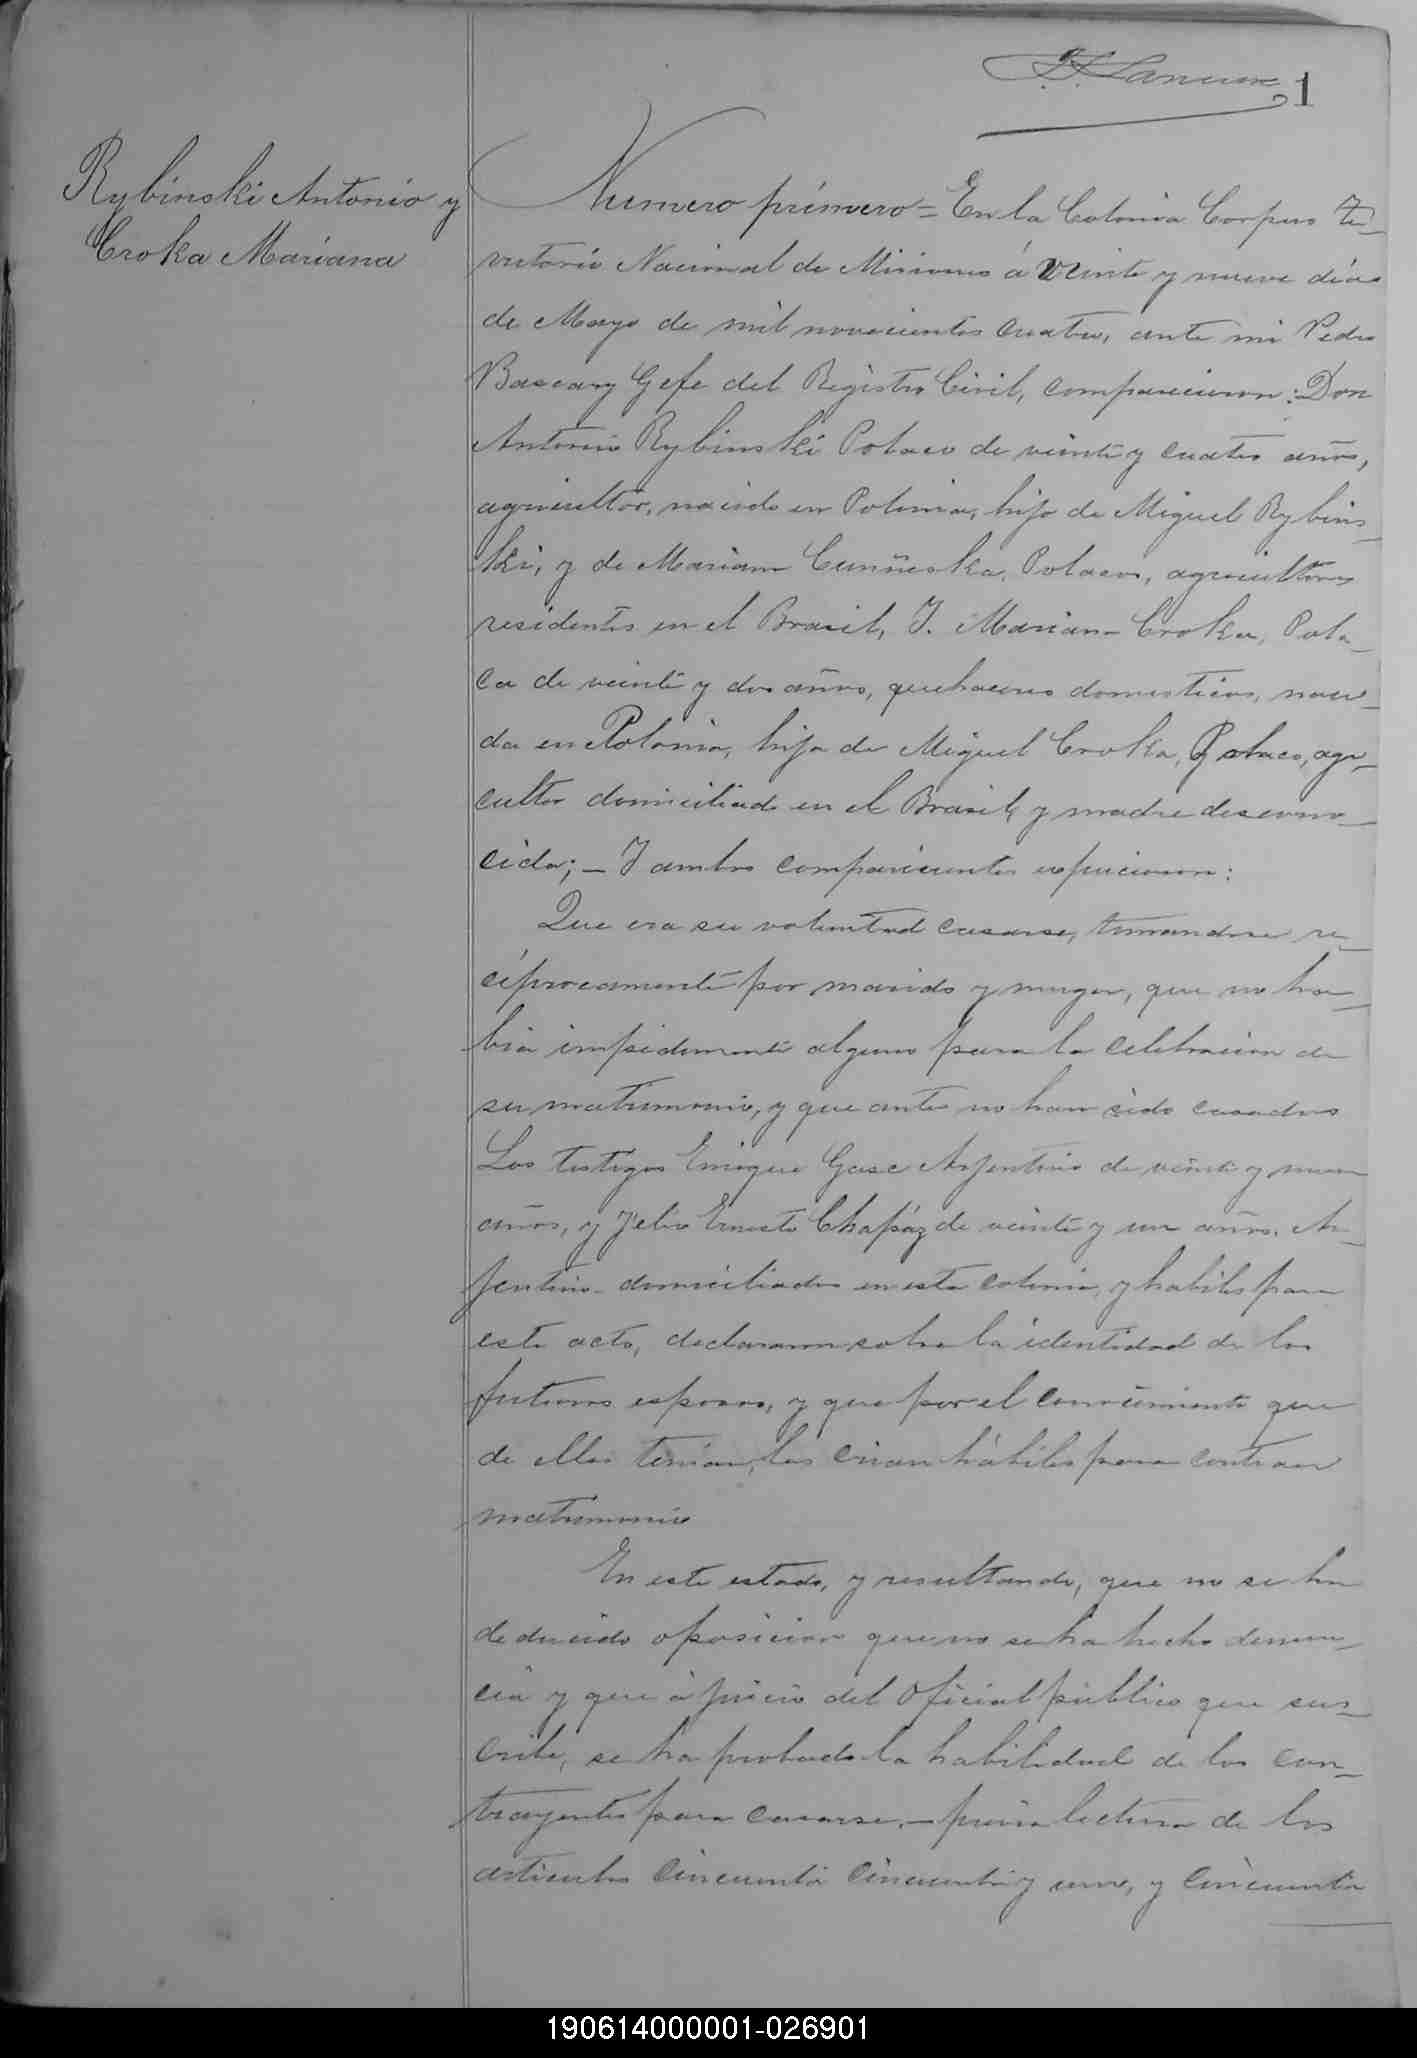 1
Rybinski Antonio y
Croka Mariana
Numero primero = En la Colonia Corpus te-
rritorio Nacional de Misiones á veinte y nueve dias
de Mayo de mil novecientos cuatro, ante mi Pedro
Bascary Gefe del Registro Civil, comparecieron: Don
Antonio Rybinski Polaco de veinte y cuatro años,
agricultor, nacido en Polonia, hijo de Miguel Rybins-
ki, y de Mariana Polacos, agricultores
residentes en el Brasil, Y. Mariana Croka, Pola-
ca de veinte y dos años, quehaceres domesticos, naci-
da en Polonia, hija de Miguel Croka, Polaco, agri-
cultor domiciliado en el Brasil, y madre descono-
cida; - Y ambos comparecientes espusieron:
Que era su voluntad casarse, tomandose re-
ciprocamente por marido y muger, que no ha-
bia impedimento alguno para la celebracion de
su matrimonio, y que antes no han sido casados
Los testigos Enrique Gasc Arjentino de veinte y nueve
años, y Felix Ernesto Chapáz de veinte y un años. Ar-
jentino domiciliados en esta colonia, y habiles para
este acto, declararon sobre la identidad de los
futuros esposos, y que por el conocimiento que
de ellos tenian, los crian hábiles para contraer
matrimonio
En este estado, y resultando, que no se ha
deducido oposicion que no se ha hecho denun-
cia y que á juicio del Oficial público que sus-
cribe, se ha probado la habilidad de los con-
trayentes para casarse. - previa lectura de los
articulos cincuenta cincuenta y uno, y cincuenta
190614000001-026901